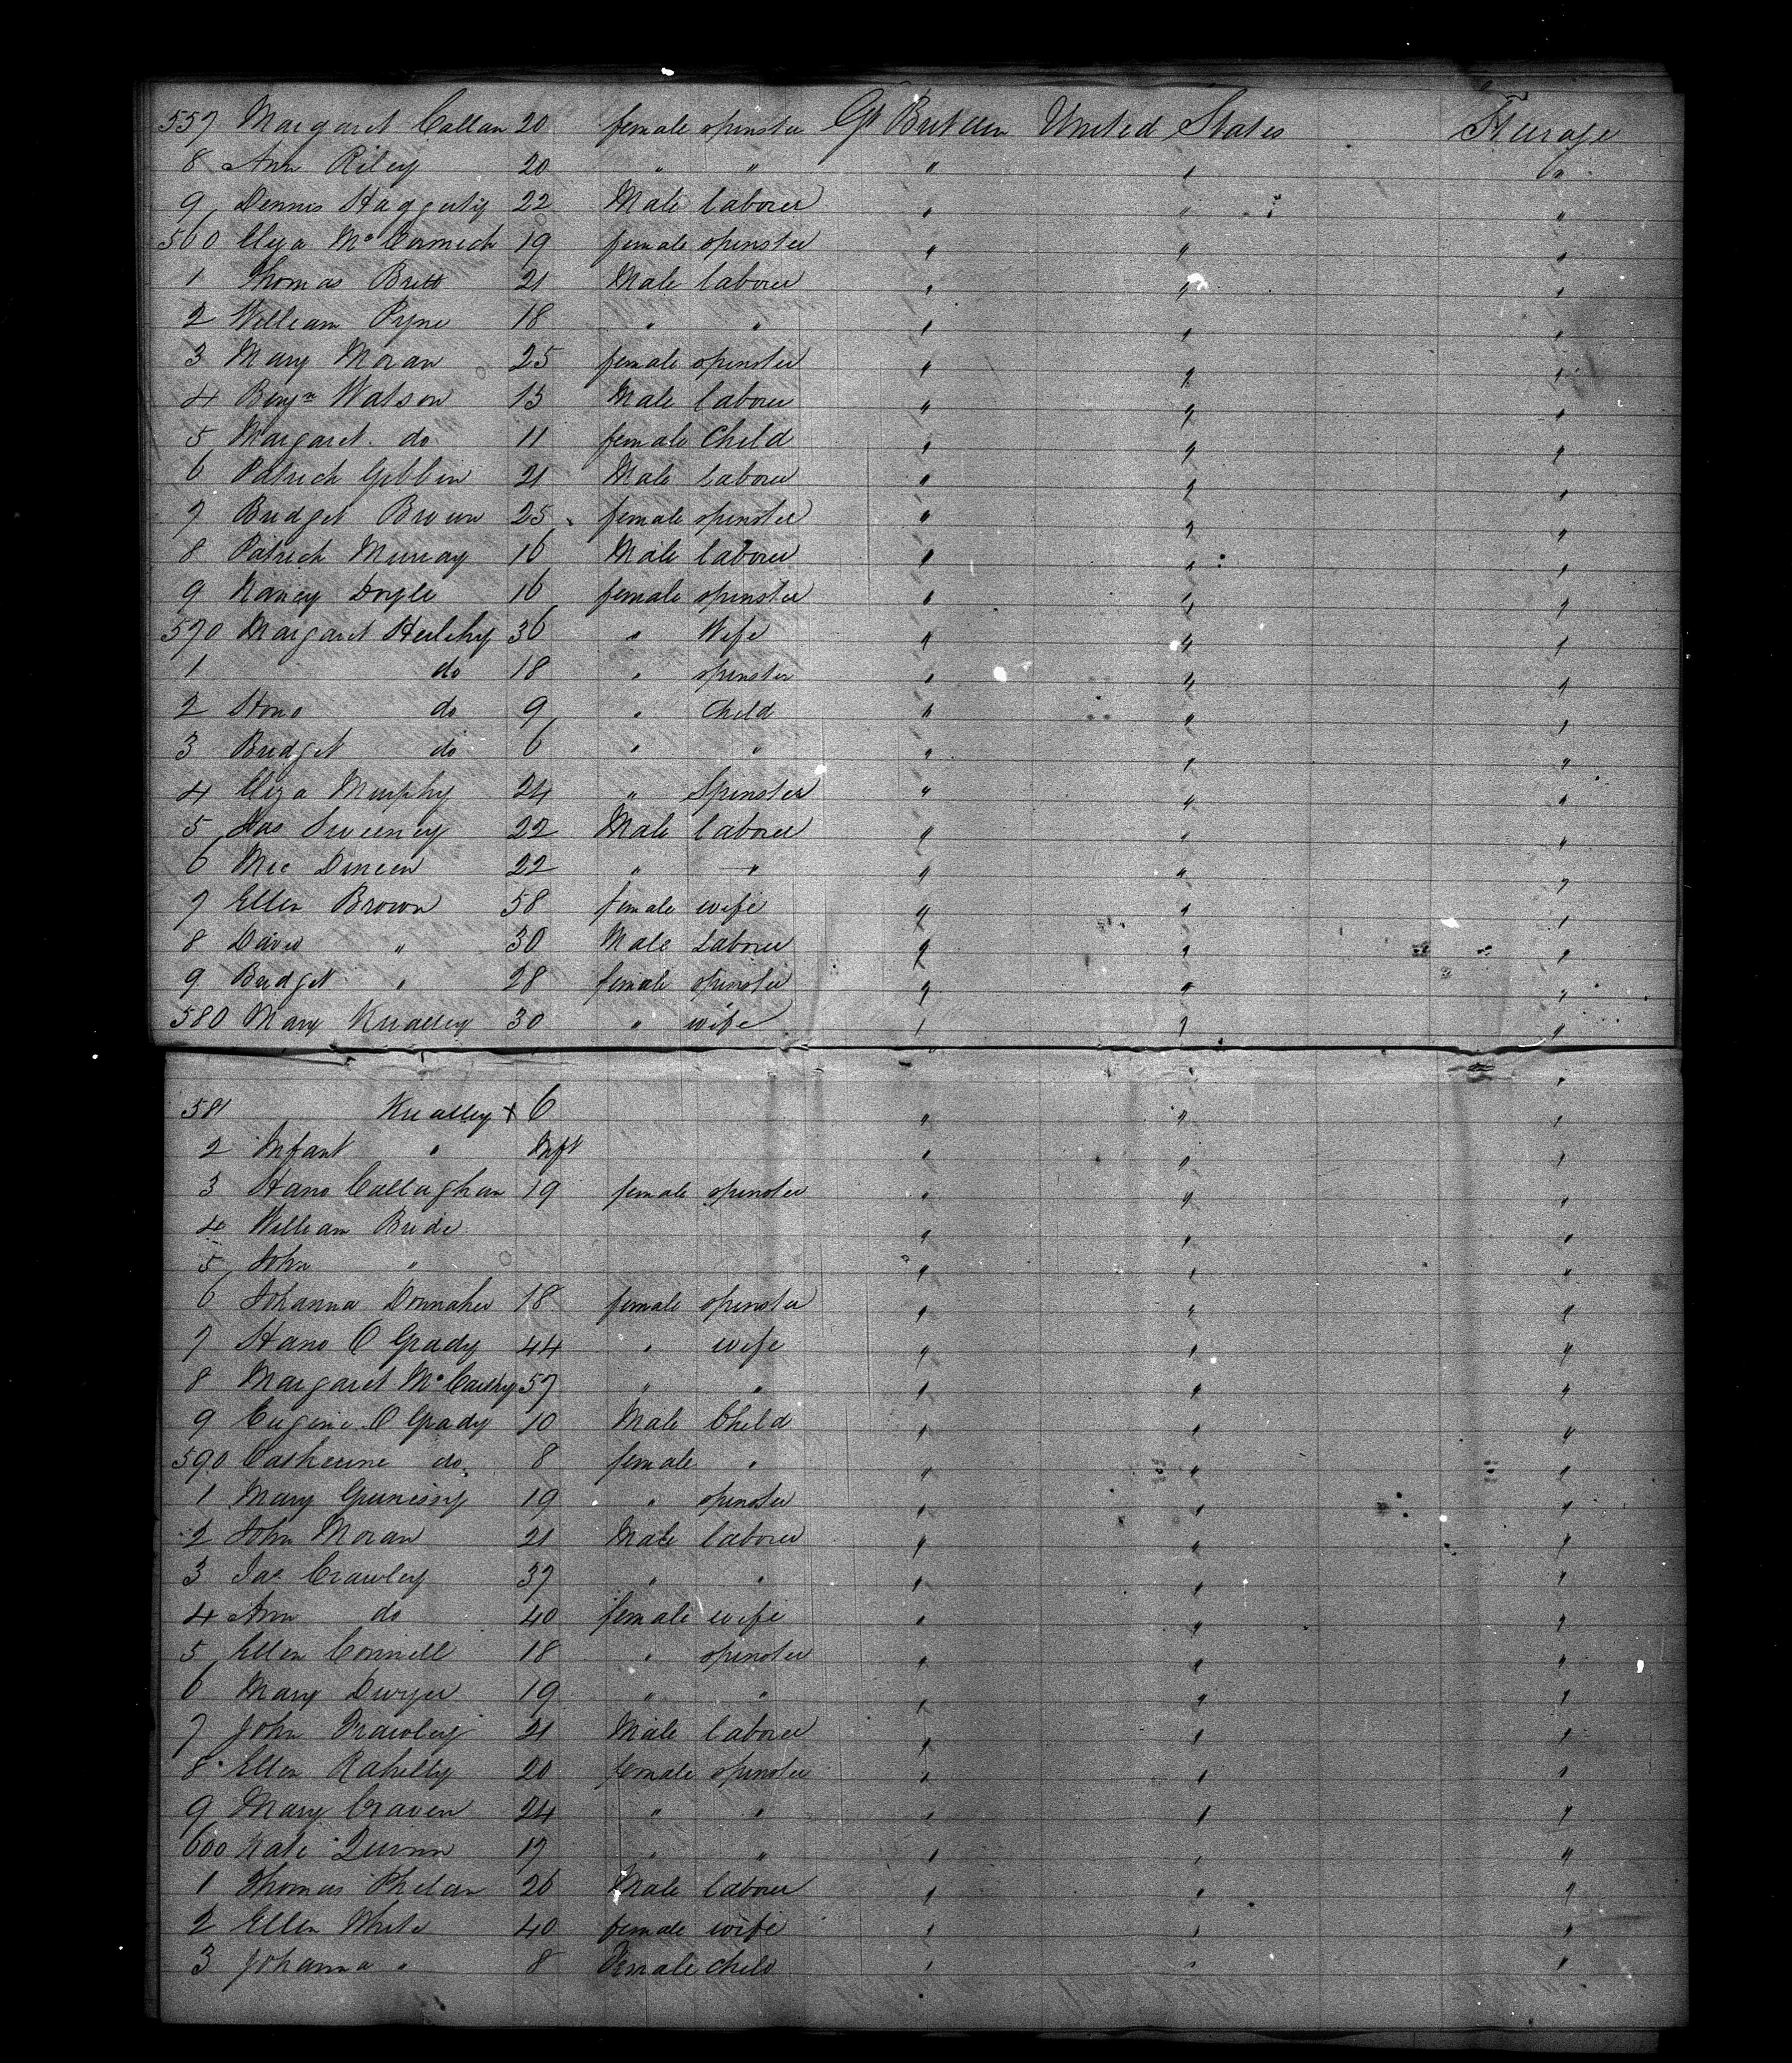 557 Margaret Callan 20 female spinster Gt Britain United States Steerage
8 Ann Riley 20 " " " " "
9 Dennis Haggerty 22 Male laborer " " "
560 Eliza McCormick 19 female spinster " " "
1 Thomas Britt 21 Male laborer " " "
2 William Pyne 18 " " " " "
3 Mary Moran 25 female spinster " " "
4 Benjn Watson 13 Male laborer " " "
5 Margaret do 11 female Child " " "
6 Patrick Gibbin 21 Male laborer " " "
7 Bridget Brown 25 female spinster " " "
8 Patrick Murray 16 Male laborer " " "
9 Nancy Doyle 16 female spinster " " "
570 Margaret 36 " Wife " " "
1 do 18 " spinster " " "
2 Hano do 9 " Child " " "
3 Bridget do 6 " " " " "
4 Eliza Murphy 24 " Spinster " " "
5 Jas Sweeney 22 Male laborer " " "
6 Mic Dineen 22 " " " " "
7 Ellen Brown 58 female wife " " "
8 David " 30 Male Laborer " " "
9 Bridget " 28 female spinster " " "
580 Mary Krialley 30 " wife " " "
581 Krialley x 6 " " "
2 Infant " Inft " " "
3 Hano Callaghan 19 female spinster " " "
4 William Bride " " "
5 John " " " "
6 Johanna Donnaher 18 female spinster " " "
7 Hano O Grady 44 " wife " " "
8 Margaret McCarthy 57 " " " " "
9 Eugene O Grady 10 Male Child " " "
590 Catherine do 8 female " " " "
1 Mary 19 " spinster " " "
2 John Moran 21 Male laborer " " "
3 Jas Crawley 37 " " " " "
4 Ann do 40 female wife " " "
5 Ellen Connell 18 " spinster " " "
6 Mary Dwyer 19 " " " " "
7 John Frawley 21 Male laborer " " "
8 Ellen Rahilly 20 female spinster " " "
9 Mary Craven 24 " " " " "
600 Kate Quinn 17 " " " " "
1 Thomas Phelan 26 Male laborer " " "
2 Ellen White 40 female wife " " "
3 Johanna " 8 Female child " " "